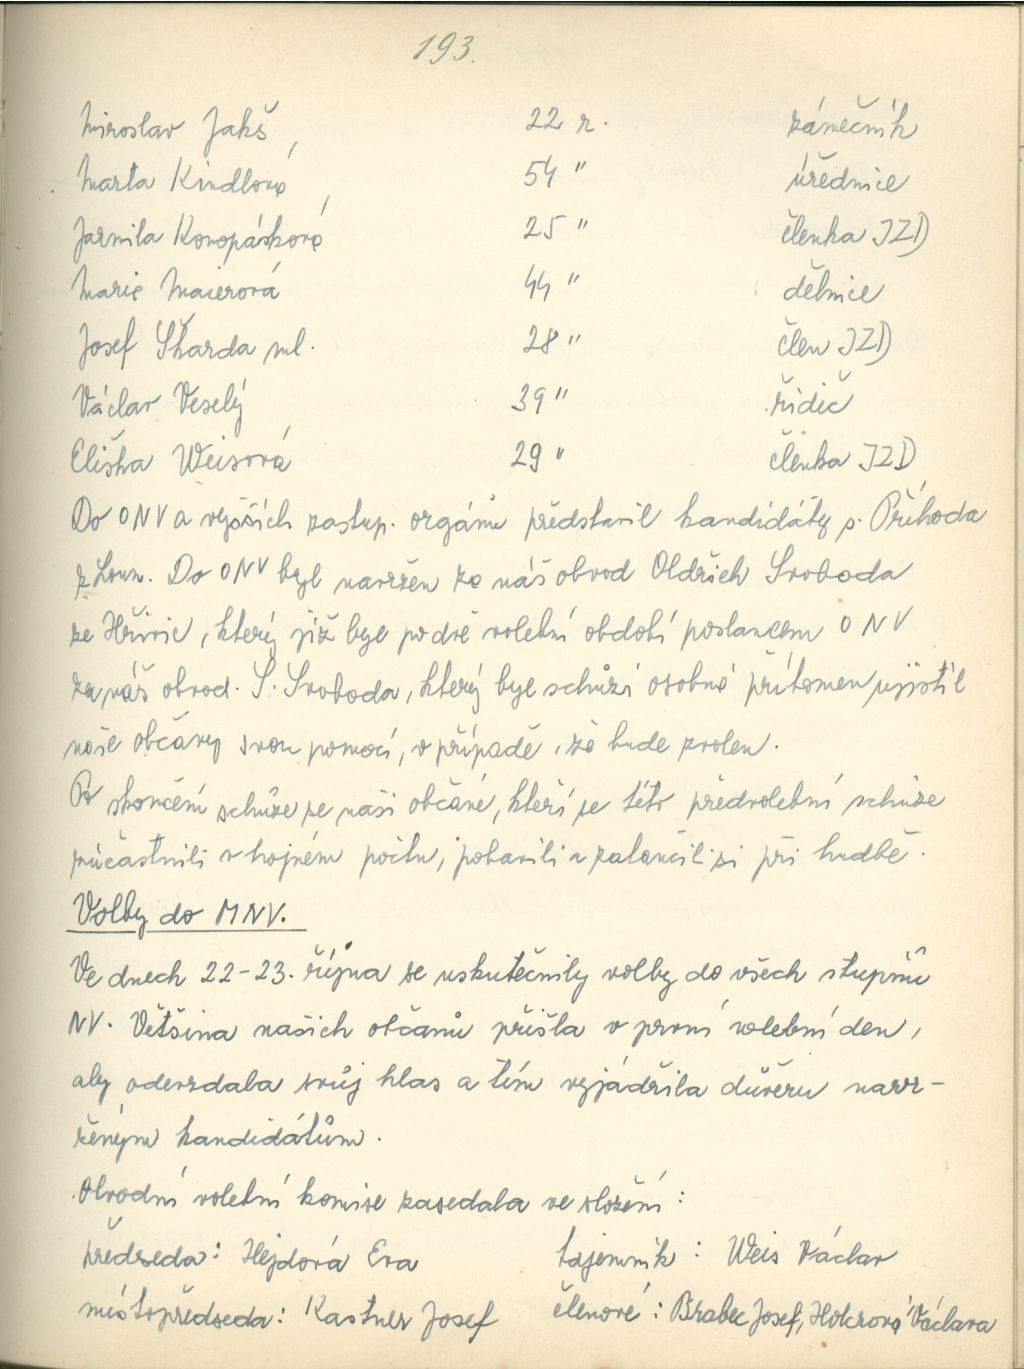 193.
Miroslav Jakš 22 r. zámečník
Marta Kindlová 54 " úřednice
Jarmila Konopásková 25 " členka JZD
Marie Maierová 44 " dělnice
Josef Škarda ml. 28 " člen JZD
Václav Veselý 39 " řidič
Eliška Weisová 29 " členka JZD
Do ONV a vyšších zastup. orgánů představil kandidáty s. Příhoda
z Loun. Do ONV byl navržen za náš obvod Oldřich Svoboda
ze Hřivic, který již byl po dvě volební období poslancem ONV
za náš obvod. S. Svoboda, který byl schůzi osobně přítomen ujistil
naše občany svou pomocí, v případě, že bude zvolen.
Po skončení schůze se naši občané, kteří se této předvolební schůze
zúčastnili v hojném počtu, pobavili a zatančili si při hudbě.
Volby do MNV.
Ve dnech 22-23. října se uskutečnily volby do všech stupňů
NV. Většina našich občanů přišla v první volební den,
aby odevzdala svůj hlas a tím vyjádřila důvěru navr-
ženým kandidátům.
Obvodní volební komise zasedala ve složení:
předseda: Hejdová Eva tajemník: Weis Václav
místopředseda: Kastner Josef členové: Brabec Josef, Hokrová Václava